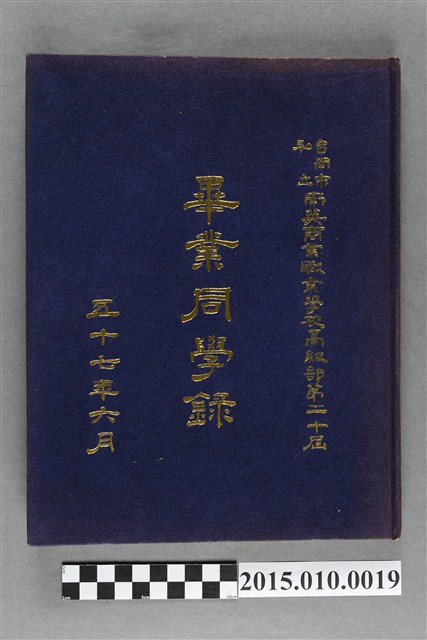 台南市
私立
南英商業職業學校高級部第二十屆
畢業同學錄
五十七年六月
2015.010.0019